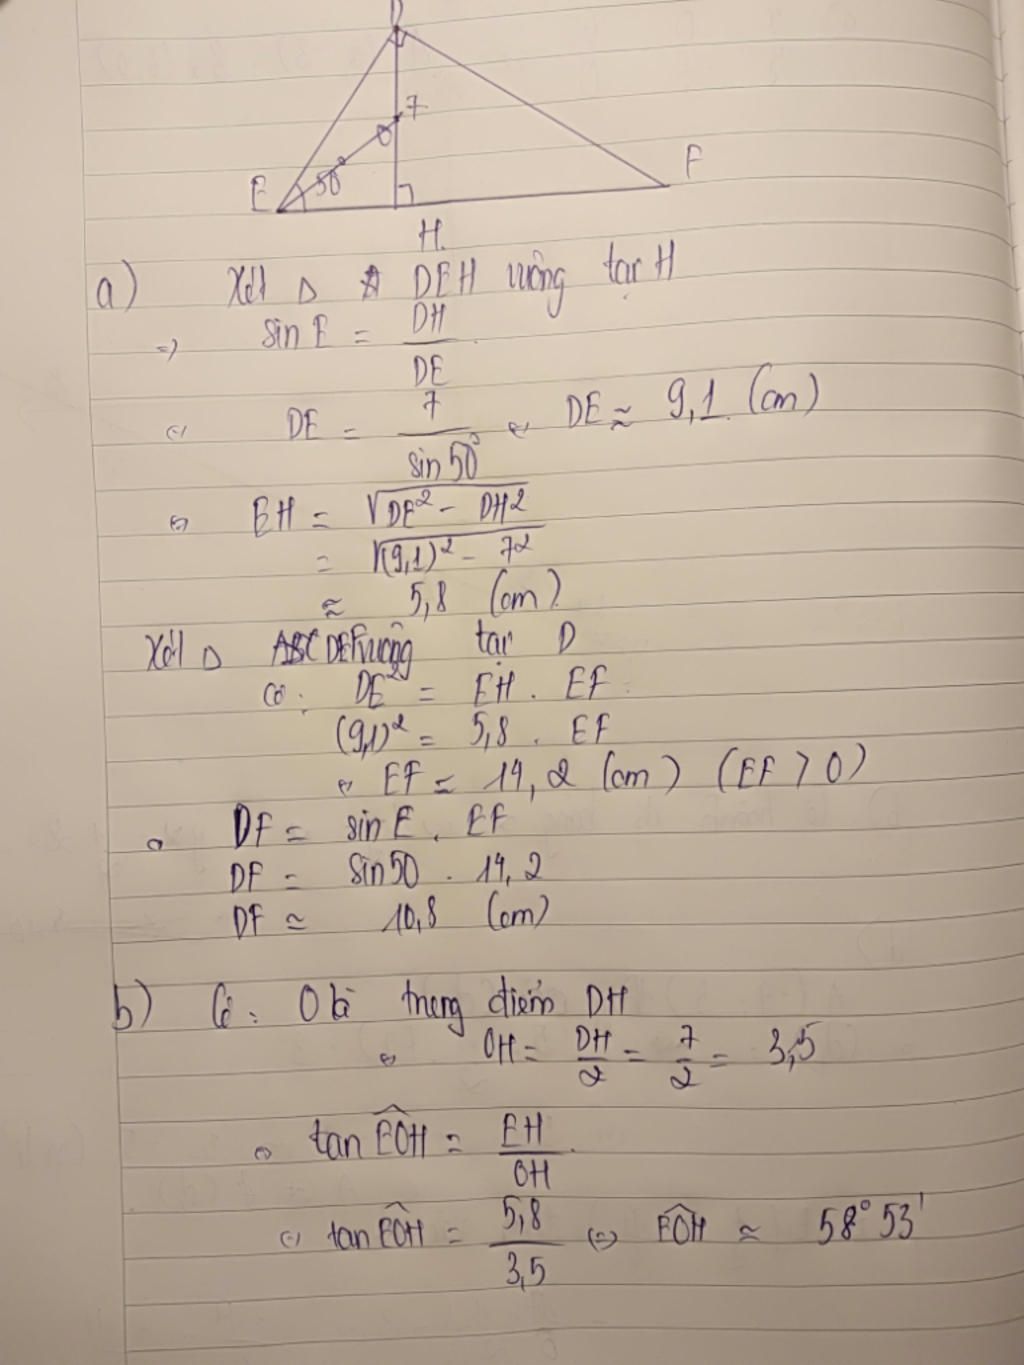 D
7
O
E 50° F
H.
a) Xét Δ DEH vuông tại H
=> sin E = DH / DE
<=> DE = 7 / sin 50° <=> DE ≈ 9,1 (cm)
<=> EH = √DE² - DH²
= √(9,1)² - 7²
≈ 5,8 (cm)
Xét Δ DEF vuông tại D
Có: DE² = EH . EF
(9,1)² = 5,8 . EF
<=> EF = 14,2 (cm) (EF > 0)
DF = sin E . EF
DF = sin50 . 14,2
DF ≈ 10,8 (cm)
b) Có: O là trung điểm DH
<=> OH = DH/2 = 7/2 = 3,5
<=> tan EOH = EH / OH
<=> tan EOH = 5,8 / 3,5 <=> EOH ≈ 58°53'